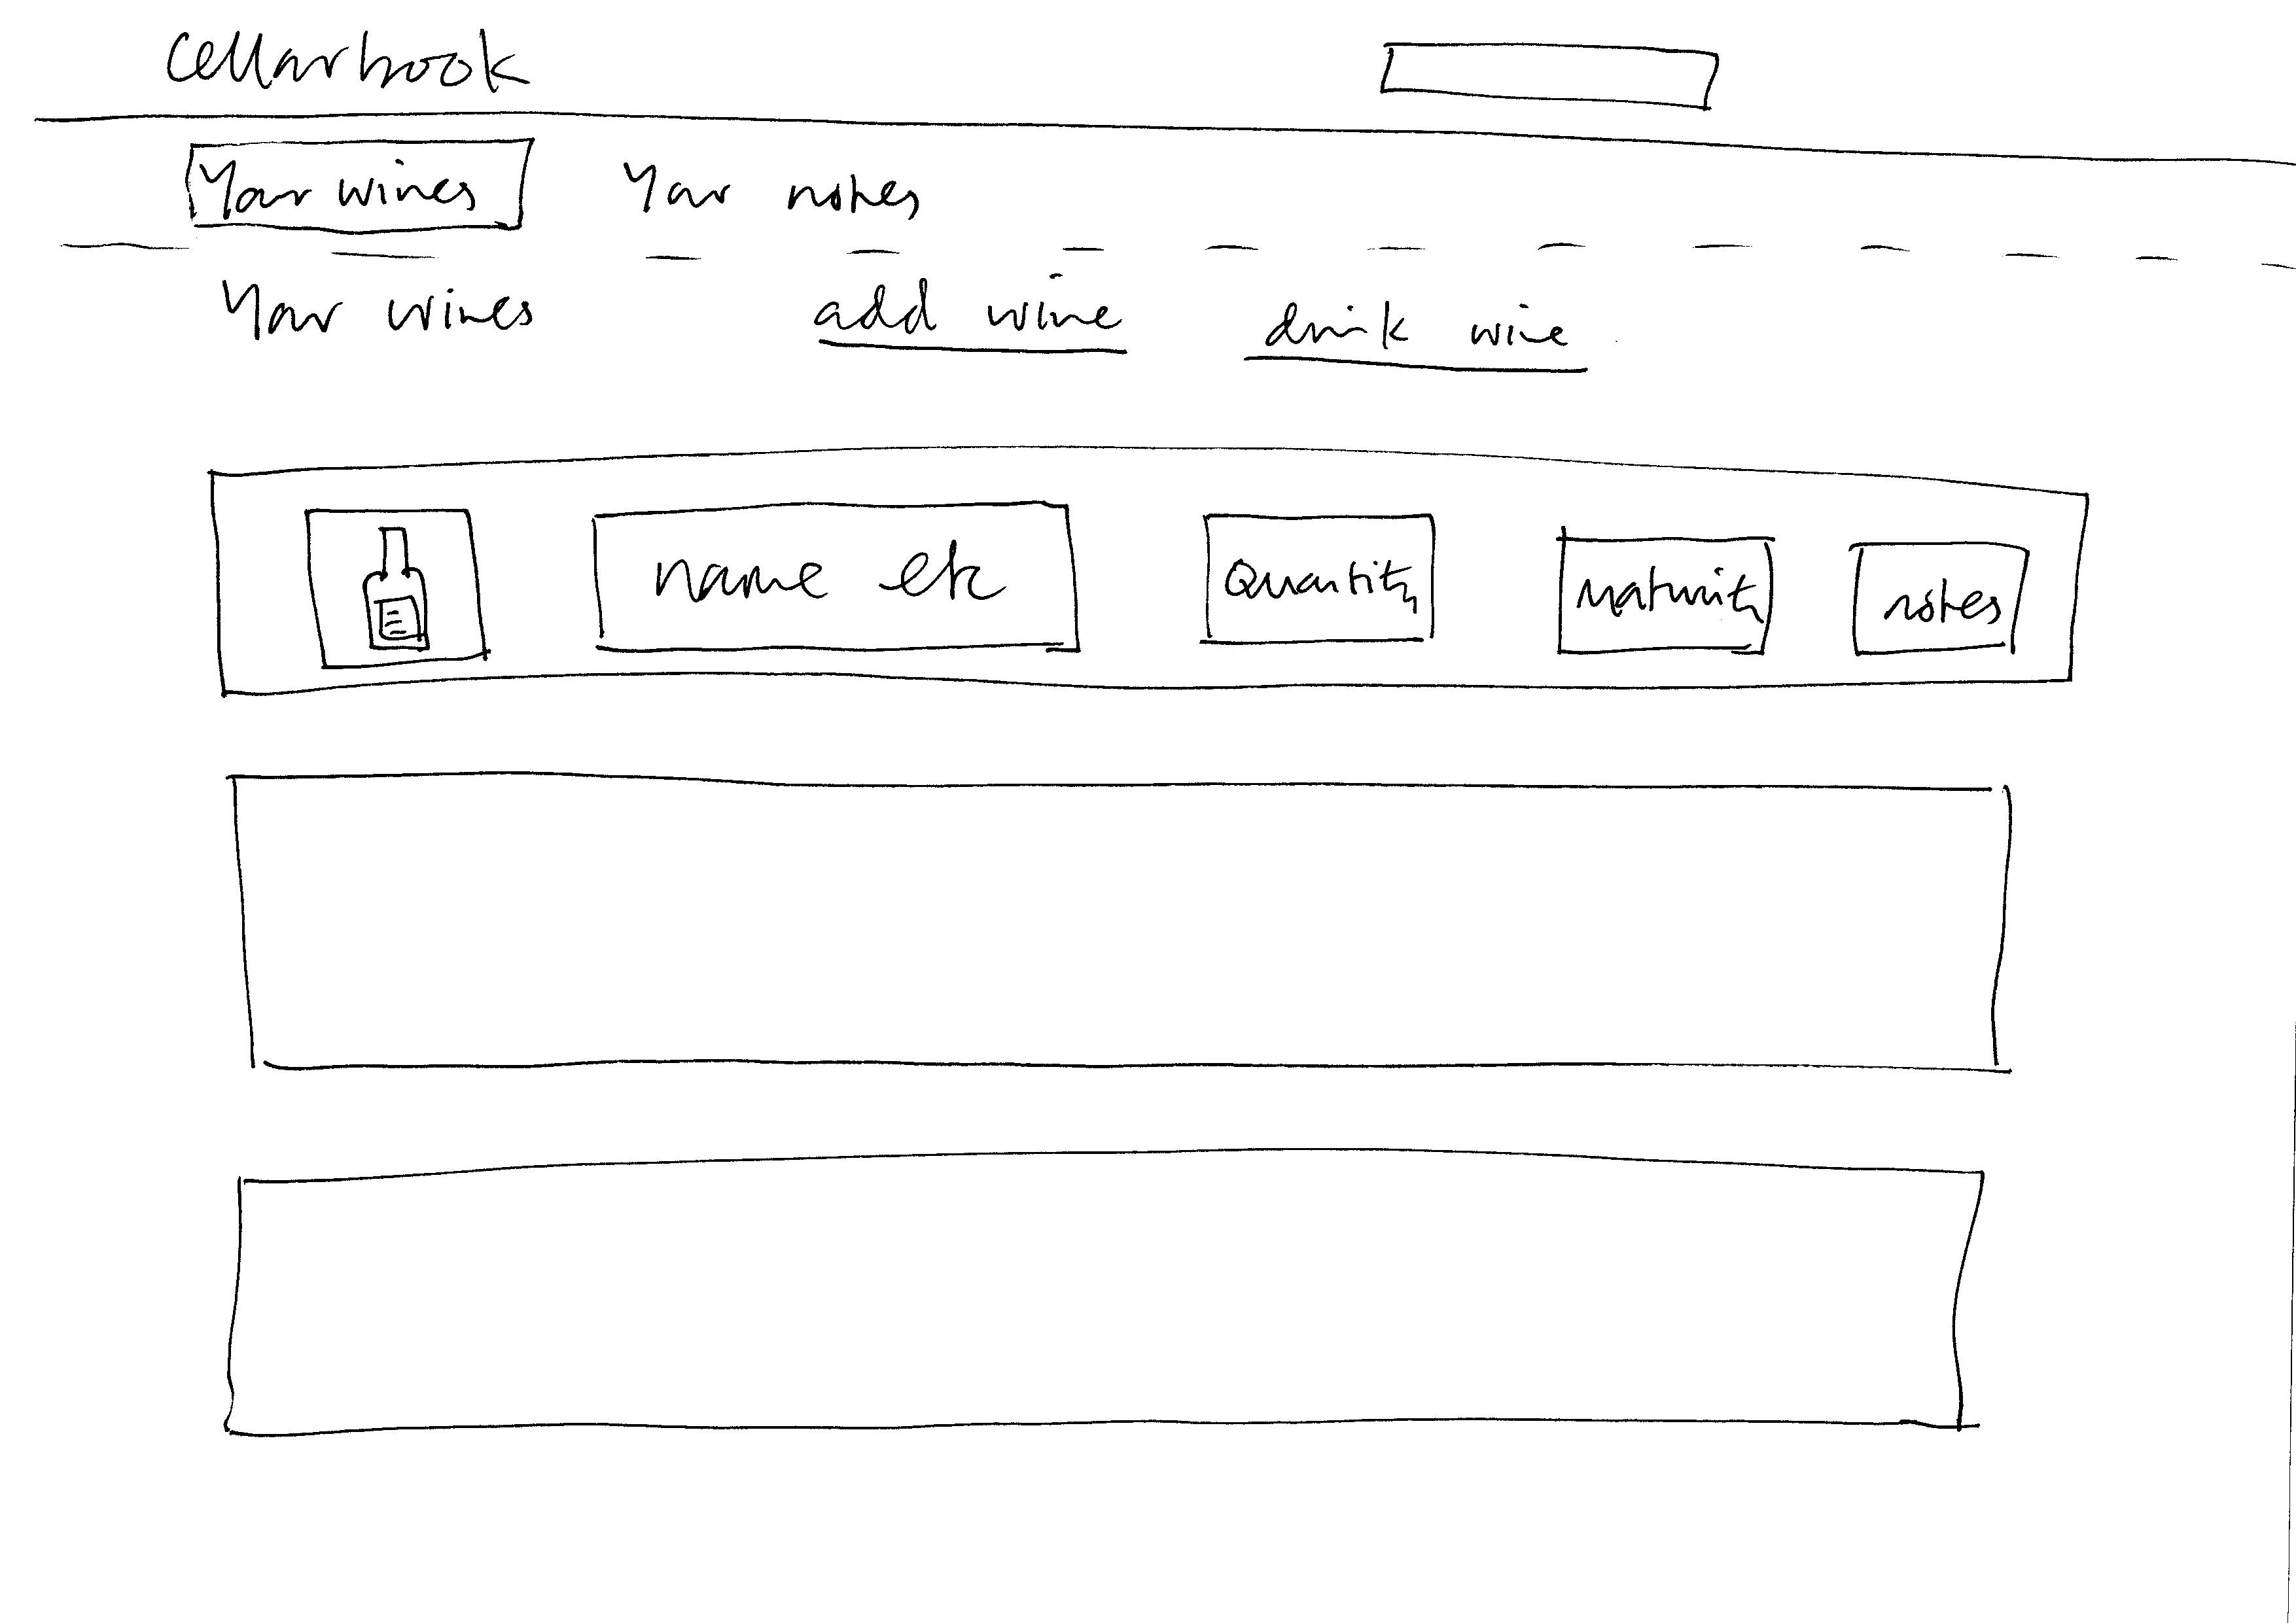 Cellarbook
Your wines Your notes
Your wines add wine drink wine
name etc Quantity maturity notes